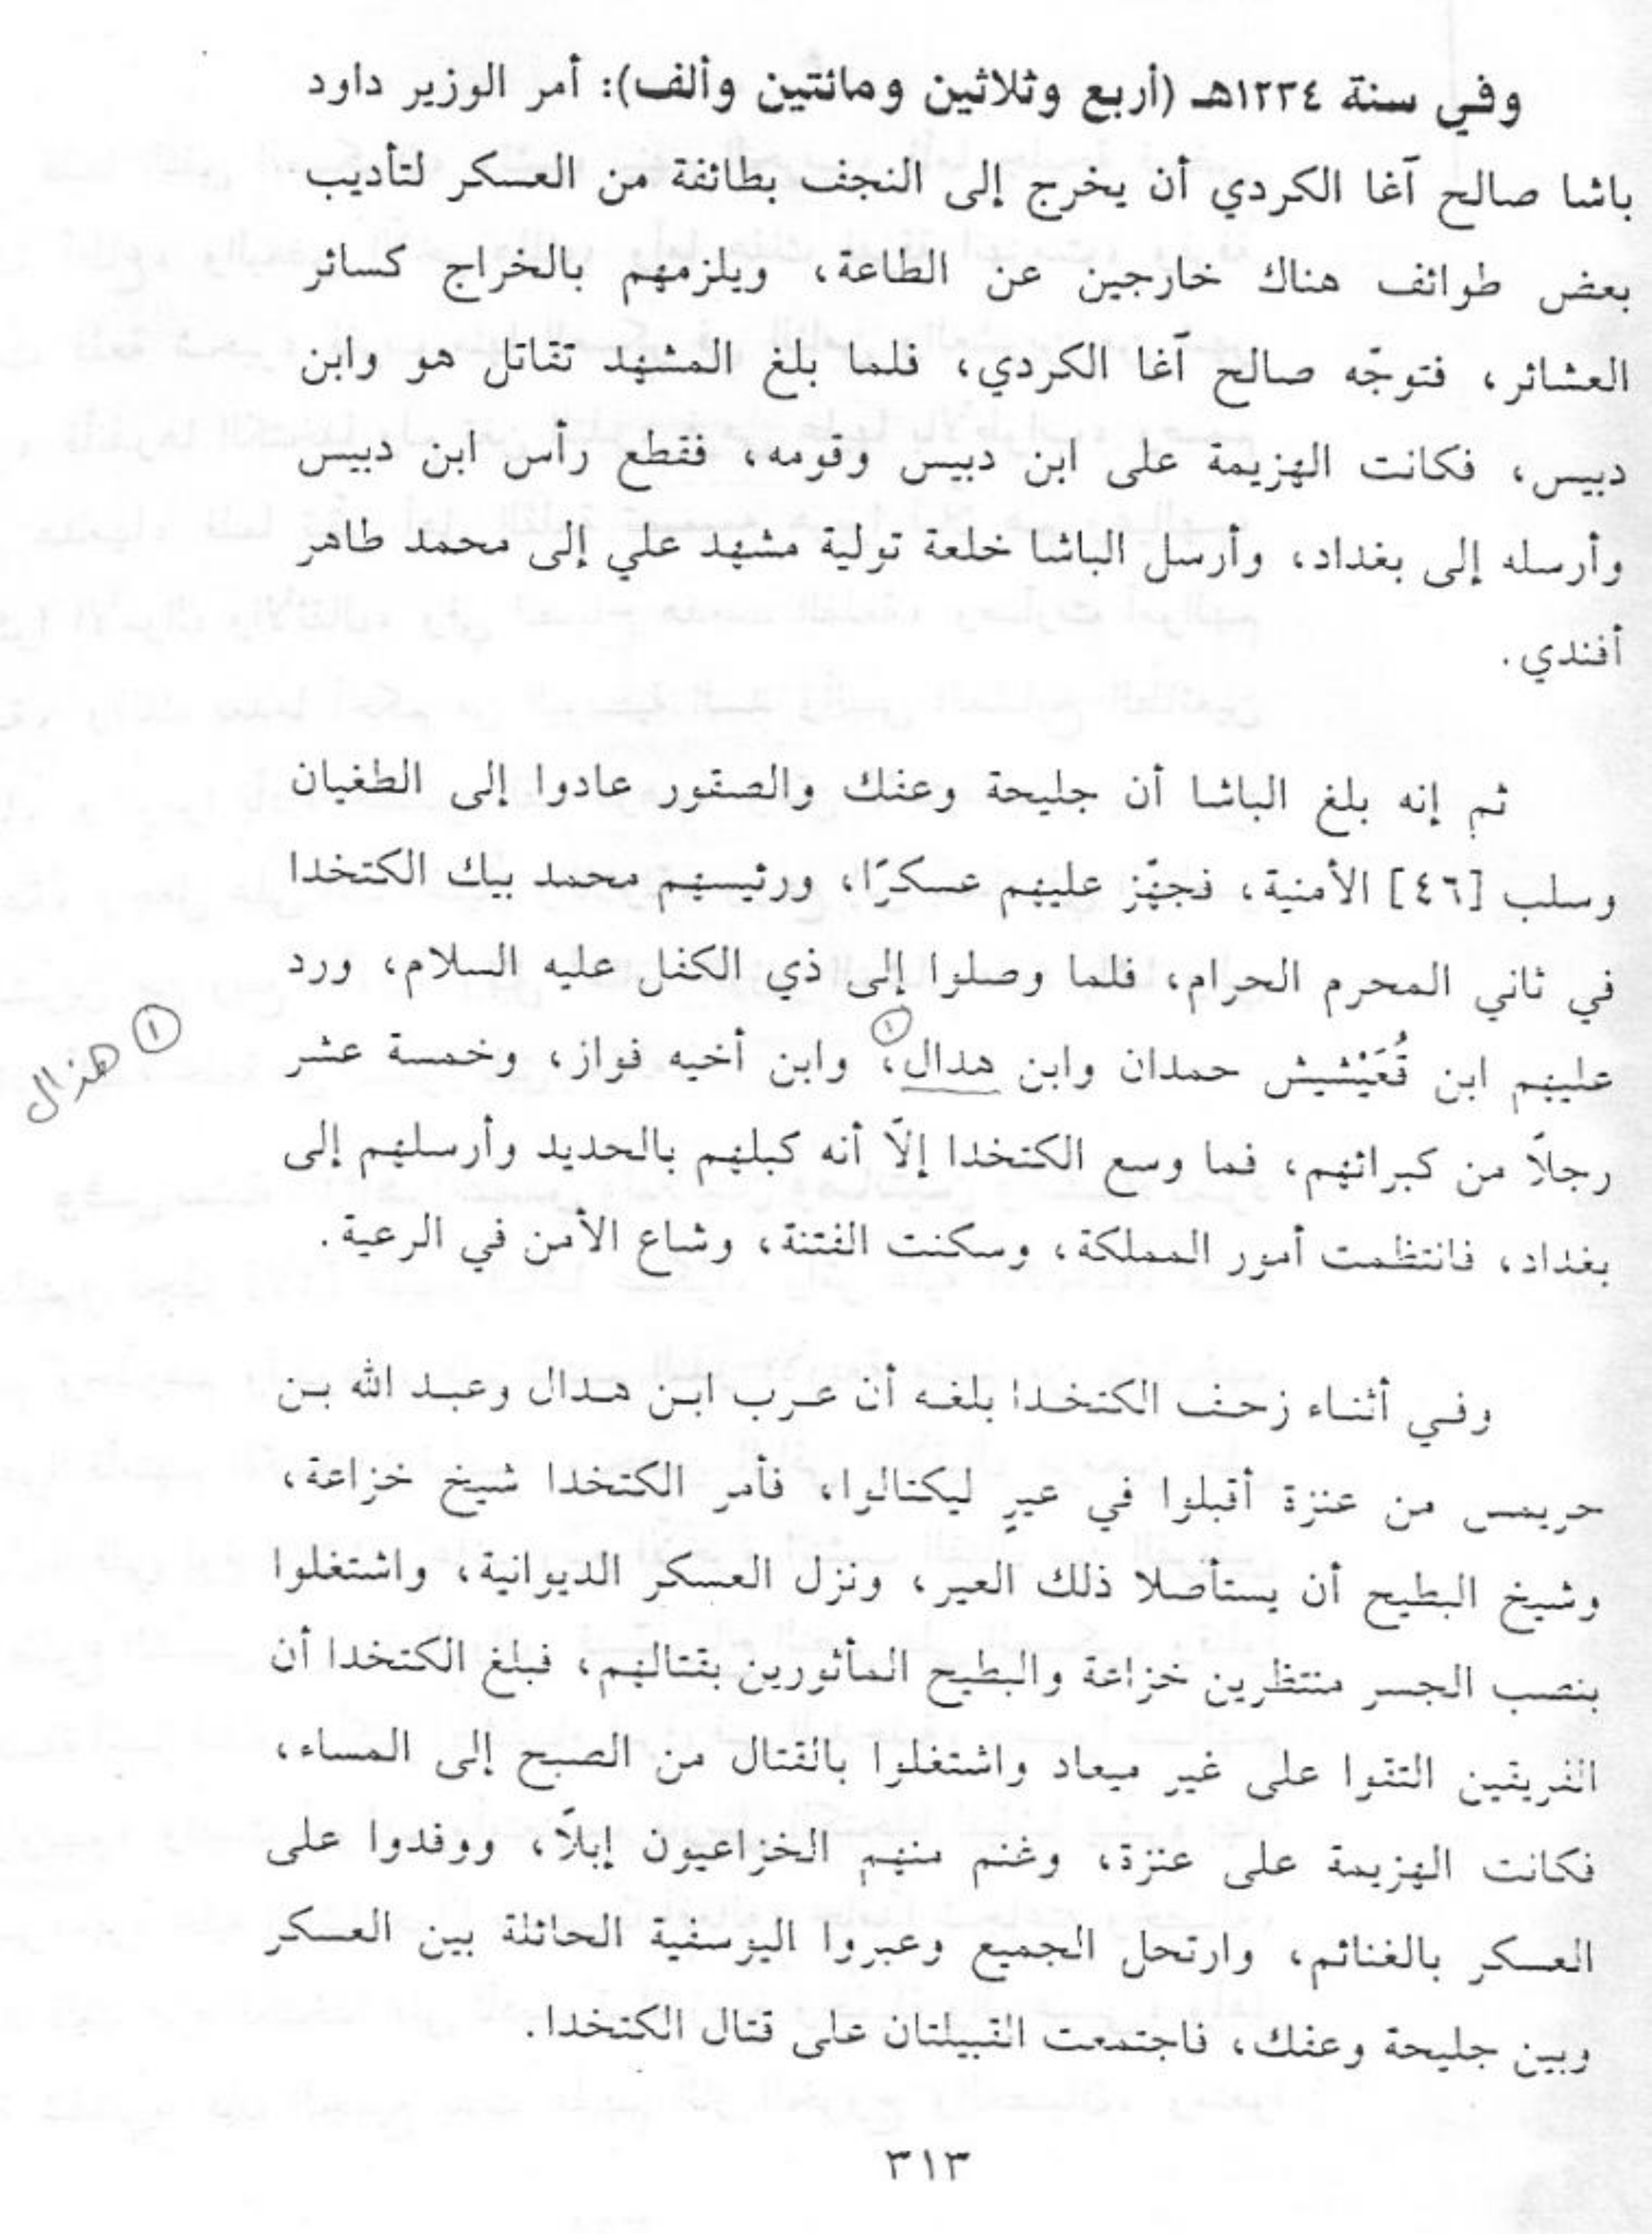 وفي سنة ١٢٣٤هـ (أربع وثلاثين ومائتين وألف): أمر الوزير داود
باشا صالح آغا الكردي أن يخرج إلى النجف بطائفة من العسكر لتأديب
بعض طوائف هناك خارجين عن الطاعة، ويلزمهم بالخراج كسائر
العشائر، فتوجّه صالح آغا الكردي، فلما بلغ المشهد تقاتل هو وابن
دبيس، فكانت الهزيمة على ابن دبيس وقومه، فقطع رأس ابن دبيس
وأرسله إلى بغداد، وأرسل الباشا خلعة تولية مشهد علي إلى محمد طاهر
أفندي.
ثم إنه بلغ الباشا أن جليحة وعفك والصقور عادوا إلى الطغيان
وسلب [٤٦] الأمنية، فجهّز عليهم عسكرًا، ورئيسهم محمد بيك الكتخدا
في ثاني المحرم الحرام، فلما وصلوا إلى ذي الكفل عليه السلام، ورد
عليهم ابن قُعَيْشيش حمدان وابن هدال، (١) وابن أخيه فواز، وخمسة عشر
(١) هذال
رجلاً من كبرائهم، فما وسع الكتخدا إلاّ أنه كبلهم بالحديد وأرسلهم إلى
بغداد، فانتظمت أمور المملكة، وسكنت الفتنة، وشاع الأمن في الرعية.
وفي أثناء زحف الكتخدا بلغه أن عرب ابن هدال وعبد الله بن
حريمس من عنزة أقبلوا في عيرٍ ليكتالوا، فأمر الكتخدا شيخ خزاعة،
وشيخ البطيح أن يستأصلا ذلك العير، ونزل العسكر الديوانية، واشتغلوا
بنصب الجسر منتظرين خزاعة والبطيح المأثورين بقتالهم، فبلغ الكتخدا أن
الفريقين التقوا على غير ميعاد واشتغلوا بالقتال من الصبح إلى المساء،
فكانت الهزيمة على عنزة، وغنم منهم الخزاعيون إبلاً، ووفدوا على
العسكر بالغنائم، وارتحل الجميع وعبروا اليوسفية الحائلة بين العسكر
وبين جليحة وعفك، فاجتمعت القبيلتان على قتال الكتخدا.
٣١٣